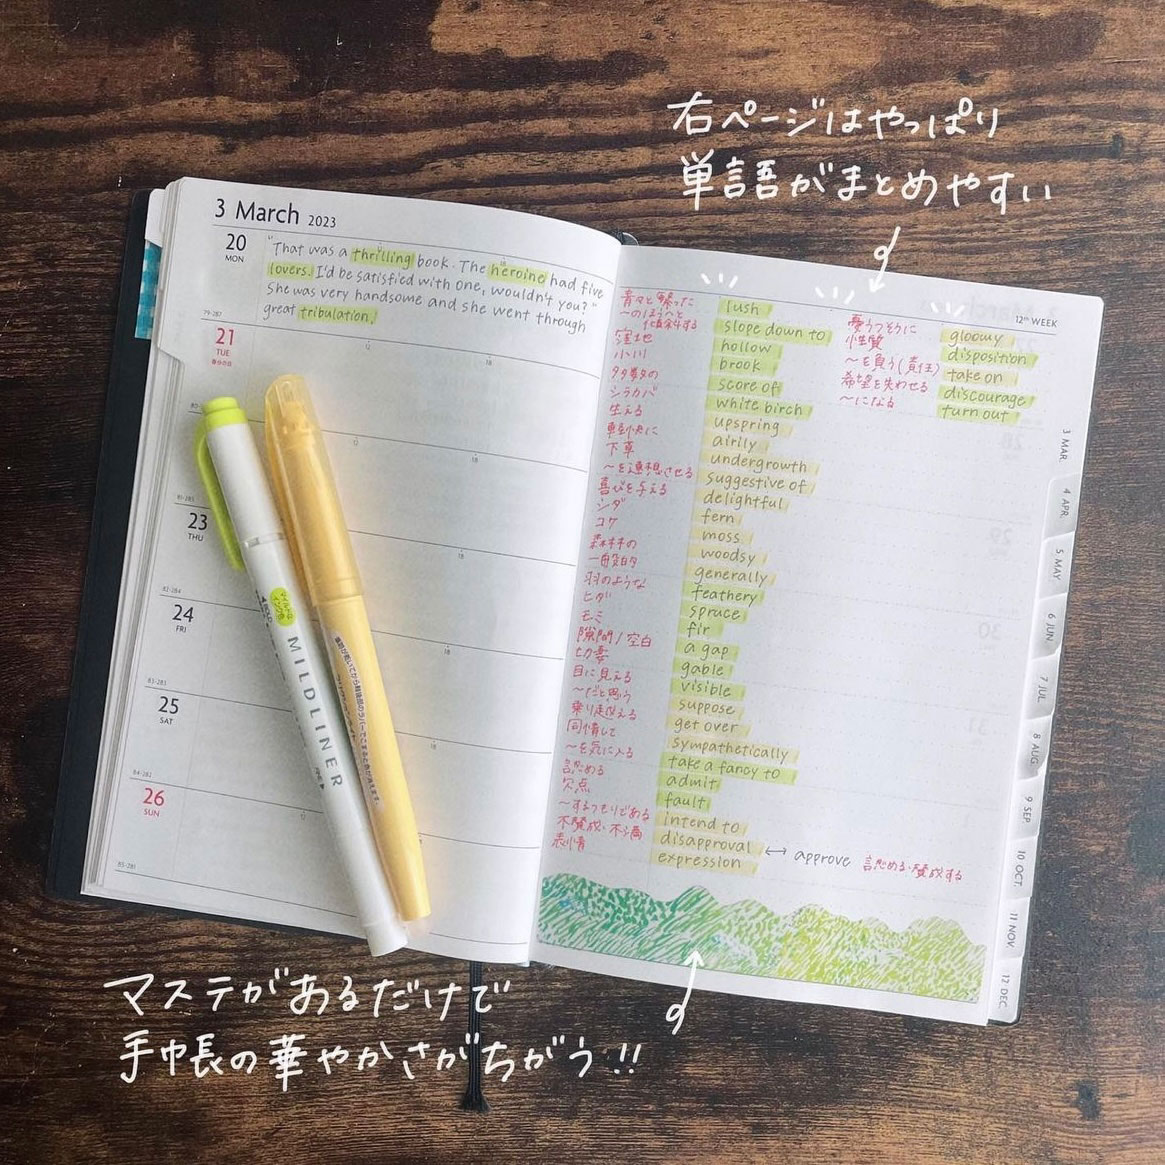 右ページはやっぱり
単語がまとめやすい
3 March 2023
20
MON
"That was a thrilling book. The heroine had five
lovers. I'd be satisfied with one, wouldn't you?"
She was very handsome and she went through
great tribulation!
79-287
21
TUE
春分の日
23
THU
81-285
24
FRI
82-284
25
SAT
83-283
26
SUN
84-282
85-281
MILDLINER
マイルドな
12th WEEK
青々と繁った lush
〜のほうへと傾斜する slope down to
窪地 hollow
小川 brook
多数の score of
シラカバ white birch
生える upspring
軽快に airily
下草 undergrowth
〜を連想させる suggestive of
喜びを与える delightful
シダ fern
コケ moss
森林の woodsy
一般的 generally
羽のような feathery
ヒダ spruce
モミ fir
隙間/空白 a gap
切妻 gable
目に見える visible
〜だと思う suppose
乗り越える get over
同情して sympathetically
〜を気に入る take a fancy to
認める admit
欠点 fault
〜するつもりである intend to
不賛成・不満 disapproval ↔ approve 認める・賛成する
表情 expression
憂うつそうに gloomy
性質 disposition
〜を負う(責任) take on
希望を失わせる discourage
〜になる turn out
3 MAR.
4 APR.
5 MAY
6 JUN.
7 JUL.
8 AUG.
9 SEP.
10 OCT.
11 NOV.
12 DEC.
マステがあるだけで
手帳の華やかさがちがう!!